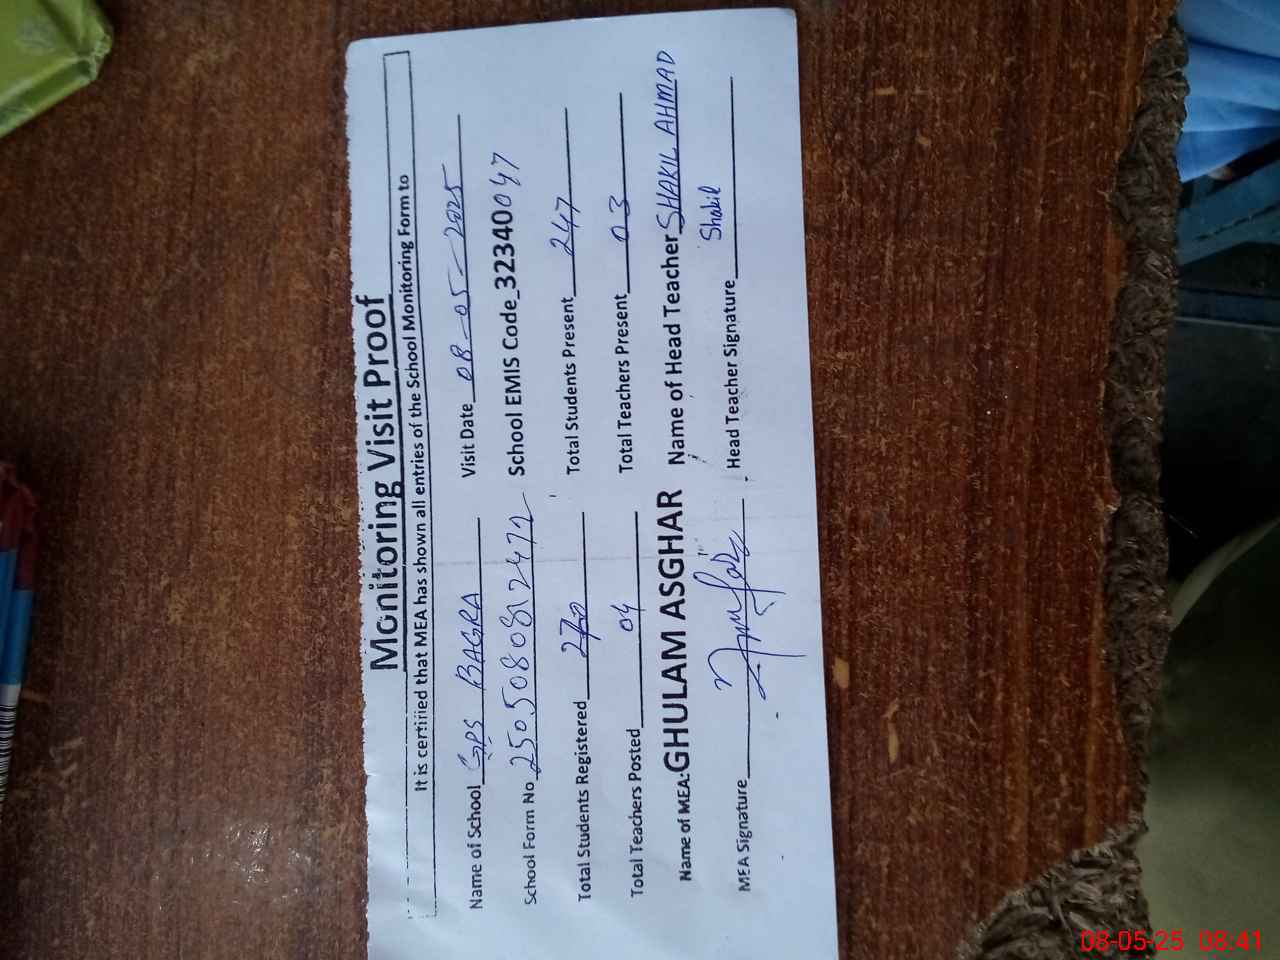 Monitoring Visit Proof
It is certified that MEA has shown all entries of the School Monitoring Form to
Name of School GPS BAGRA Visit Date 08-05-2025
School Form No 2505080812472 School EMIS Code_32340047
Total Students Registered 270 Total Students Present 247
Total Teachers Posted 04 Total Teachers Present 03
Name of MEA:GHULAM ASGHAR Name of Head Teacher SHAKIL AHMAD
MEA Signature Head Teacher Signature Shakil
08-05-25 08:41